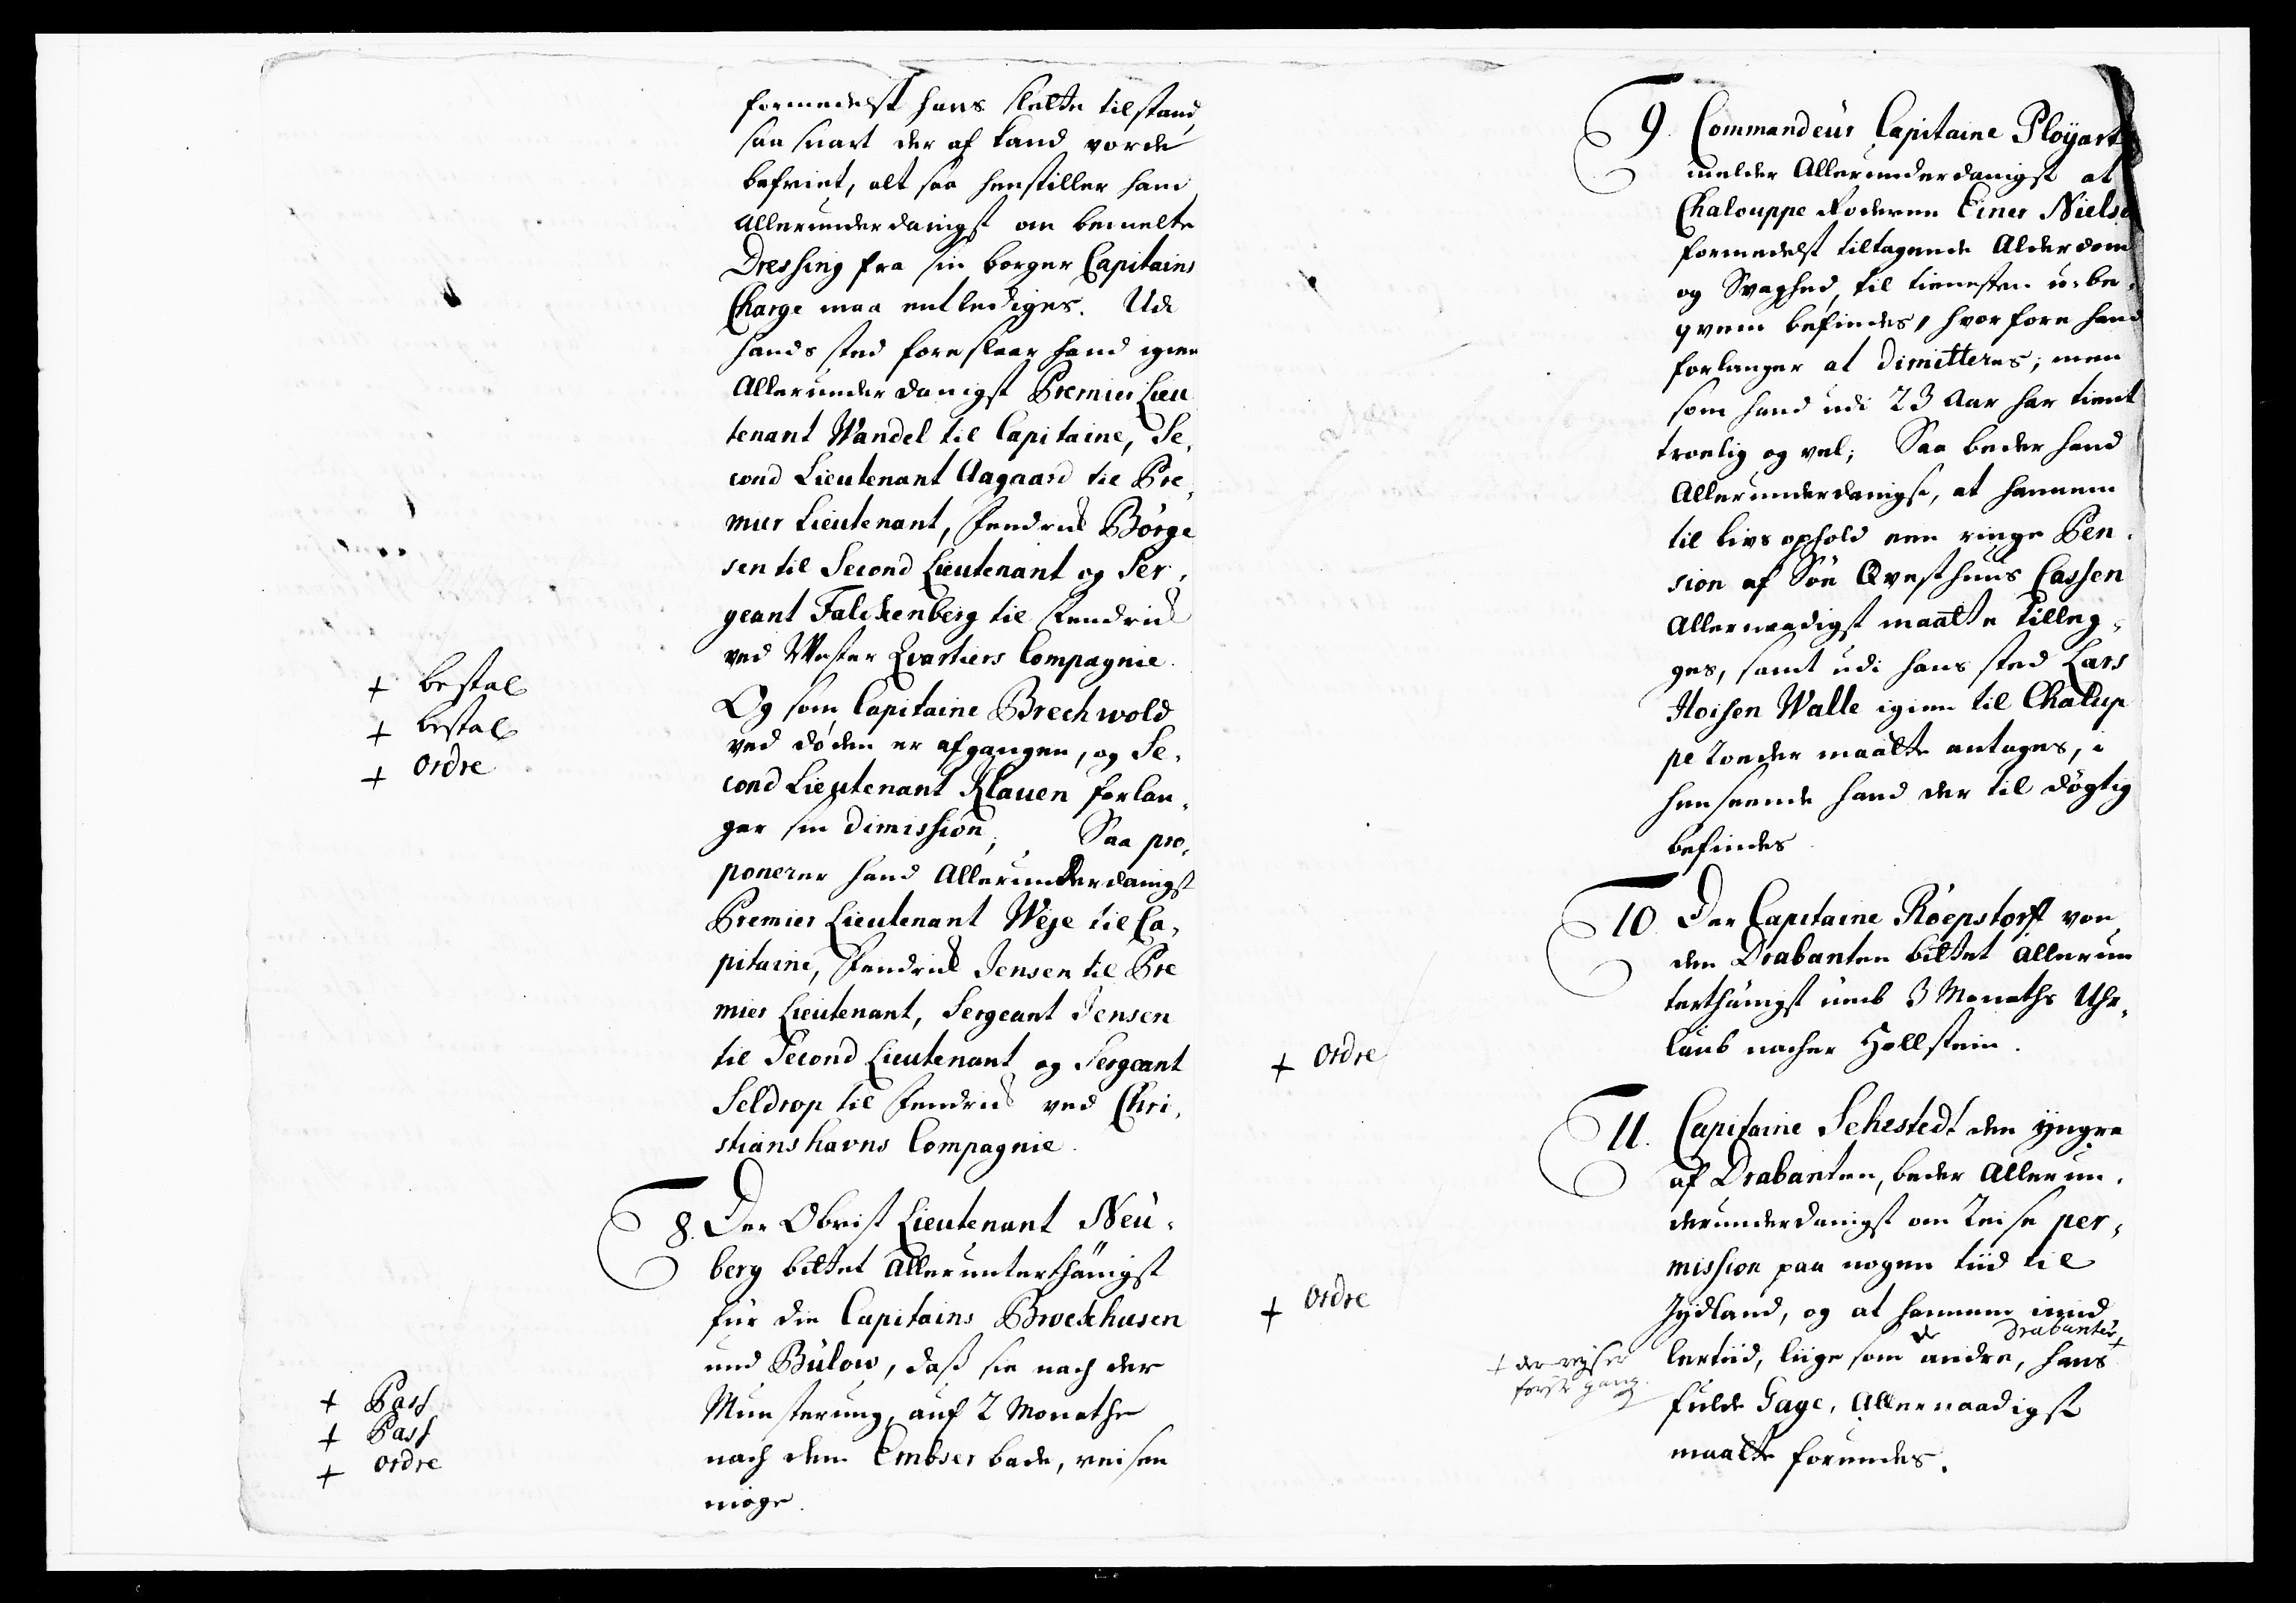 formedelst hans slette tilstand
saa snart der af kand vorde
befriet, alt saa henstiller hand
allerunderdanigst om bemelte
Dressing fra sin borger Capitains
Charge maa entlediges. Udi
hands sted foreslaar hand igien
Allerunderdanigst Premier Lieu
tenant Wandel til Capitaine, Se,
cond Lieutenant Aagaard til Pre,
mier Lieutenant, Fendrick Börge
sen til Second Lieutenant og Ser,
geant Falckenberg til Fendrick
ved Wester Qvartiers Compagnie.
+ bestal
+ bestal
+ ordre
Og som Capitaine Brechwold
ved døden er afgangen, og Se,
cond Lieutenant Klauen forlan,
ger sin Dimission; Saa pro,
ponerer hand Allerunderdanigst
Premier Lieutenant Weje til Ca,
pitaine, Fendrick Jensen til Pre
mier Lieutenant, Sergeant Jensen
til Second Lieutenant og Sergeant
Seldrop til Fendrick ved Chri,
stianshavns Compagnie.
8. Der Obrist Lieutenant Neu,
berg bittet Allerunterthänigst
für die Capitains Brockhusen
und Bülow, daß sie nach der
Munsterung, auf 2 Monathe
nach dem Embser bade, reisen
möge.
+ Pass
+ Pass
+ ordre
9. Commandeur Capitaine Ployart
melder Allerunderdanigst at
Chalouppe Roderen Einer Nielse
formedelst tiltagende Alderdom
og Svaghed, til tienesten u-be,
qvem befindes, hvorfore hand
forlanger at dimitteres; men
som hand udi 23 Aar har tient
troelig og vel; Saa beder hand
Allerunderdanigst, at hannem
til livs ophold een ringe Pen,
sion af Söe Qvesthuus Cassen
Allernaadigst maatte tilleg,
ges, samt udi hans sted Lars
Hoisen Walle igien til Chalup
pe Roeder maatte antages, i
henseende hand der til dögtig
befindes.
10. Der Capitaine Röepstorff von
den Drabanten bittet Allerun
terthänigst umb 3 Monaths Uhr,
laub nacher Hollstein.
+ ordre
11. Capitaine Sehestedt den yngre
af Drabanten, beder Allerun,
derunderdanigst om Reise per,
mission paa nogen tiid til
Jydland, og at hannem imid
de Drabanter +
lertiid, liige som andre, hans
fulde Gage, Allernaadigst
maatte forundes.
+ ordre
+ der rejser
förste gang.